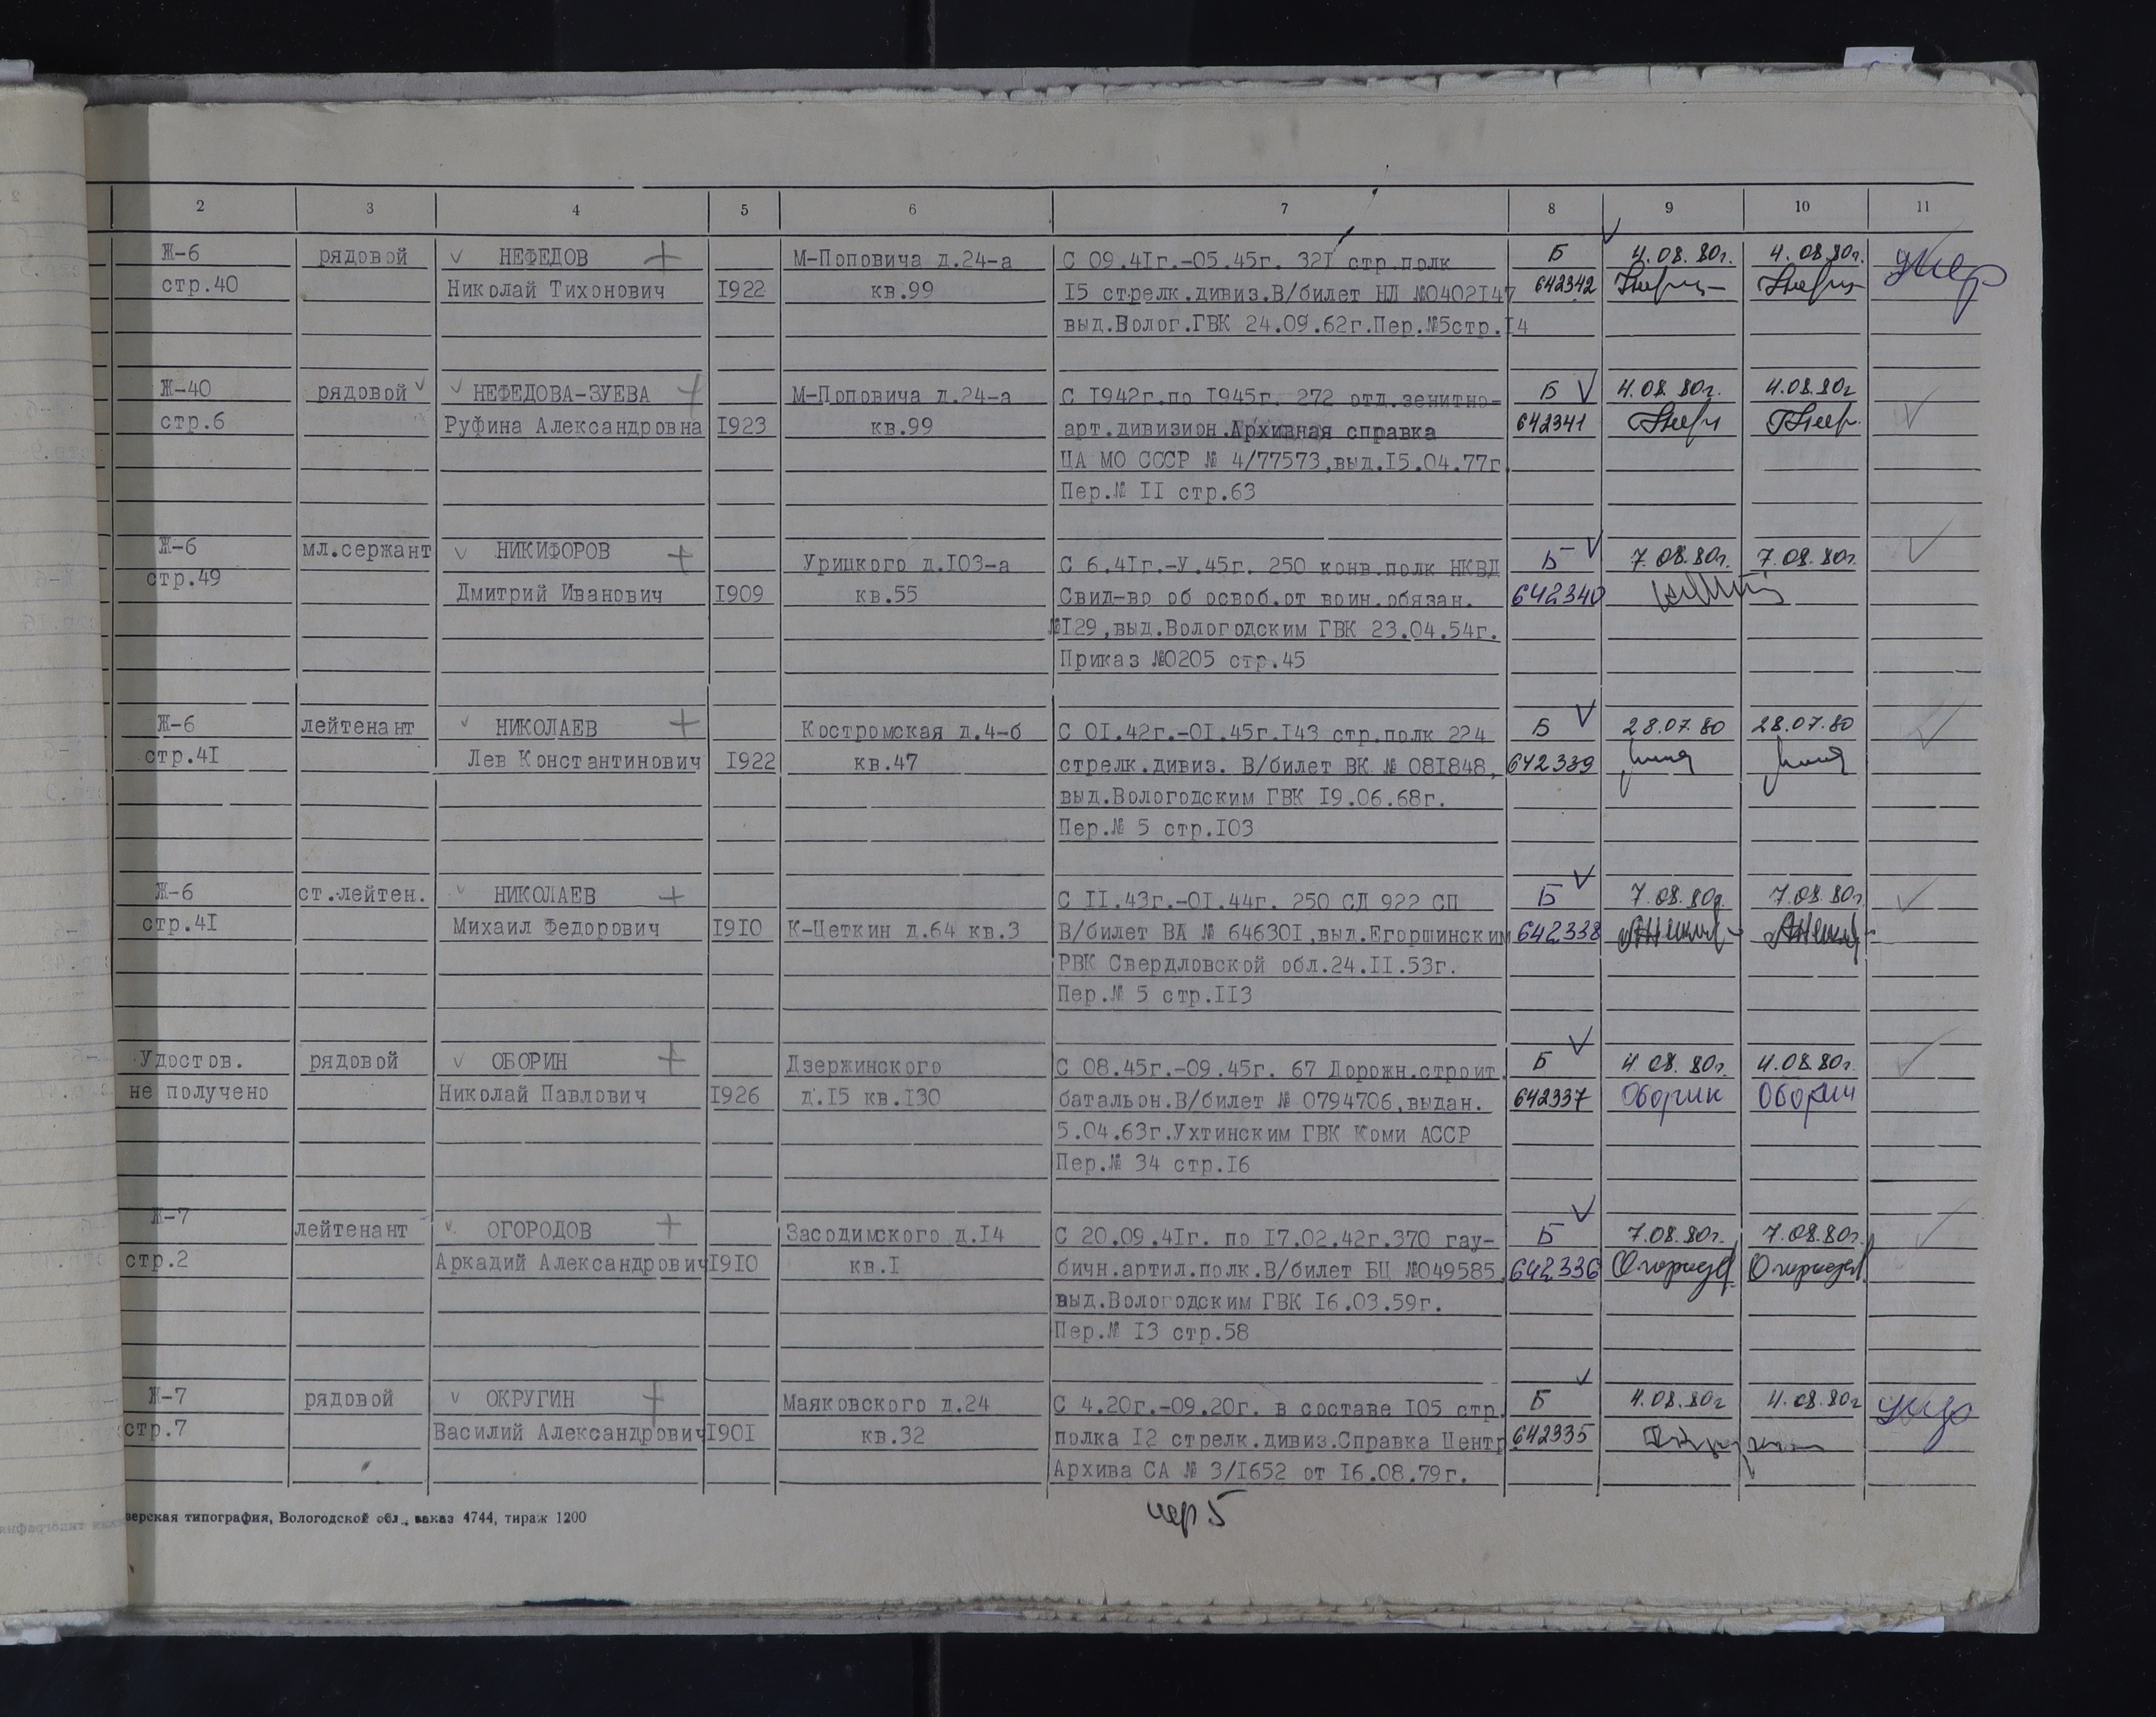 2 3 4 5 6 7 8 9 10 11
Ж-6 рядовой НЕФЕДОВ М-Поповича д.24-а С 09.4Iг.-05.45г. 32I стр.полк Б 4.08.80г. 4.08.80г. умер
стр.40 Николай Тихонович I922 кв.99 I5 стрелк.дивиз.В/билет НЛ №0402I47 642342
выд.Волог.ГВК 24.09.62г.Пер.№5стр.I4
Ж-40 рядовой НЕФЕДОВА-ЗУЕВА М-Поповича д.24-а С I942г.по I945г. 272 отд.зенитно- Б 4.08.80г. 4.08.80г
стр.6 Руфина Александровна I923 кв.99 арт.дивизион.Архивная справка 642341
ЦА МО СССР № 4/77573,выд.I5.04.77г.
Пер.№ II стр.63
Ж-6 мл.сержант НИКИФОРОВ Урицкого д.I03-а С 6.4Iг.-У.45г. 250 конв.полк НКВД Б 7.08.80г. 7.08.80г.
стр.49 Дмитрий Иванович I909 кв.55 Свид-во об освоб.от воин.обязан. 642340
№I29,выд.Вологодским ГВК 23.04.54г.
Приказ №0205 стр.45
Ж-6 лейтенант НИКОЛАЕВ Костромская д.4-б С 0I.42г.-0I.45г.I43 стр.полк 224 Б 28.07.80 28.07.80
стр.4I Лев Константинович I922 кв.47 стрелк.дивиз. В/билет ВК № 08I848, 642339
выд.Вологодским ГВК I9.06.68г.
Пер.№ 5 стр.I03
Ж-6 ст.лейтен. НИКОЛАЕВ С II.43г.-0I.44г. 250 СД 922 СП Б 7.08.80г. 7.08.80г.
стр.4I Михаил Федорович I9I0 К-Цеткин д.64 кв.3 В/билет ВА № 64630I,выд.Егоршинским 642338
РВК Свердловской обл.24.II.53г.
Пер.№ 5 стр.II3
Удостов. рядовой ОБОРИН Дзержинского С 08.45г.-09.45г. 67 Дорожн.строит. Б 4.08.80г. 4.08.80г.
не получено Николай Павлович I926 д.I5 кв.I30 батальон.В/билет № 0794706,выдан. 642337 Оборин Оборин
5.04.63г.Ухтинским ГВК Коми АССР
Пер.№ 34 стр.I6
Ж-7 лейтенант ОГОРОДОВ Засодимского д.I4 С 20.09.4Iг. по I7.02.42г.370 гау- Б 7.08.80г. 7.08.80г.
стр.2 Аркадий Александрович I9I0 кв.I бичн.артил.полк.В/билет БЦ №049585, 642336
выд.Вологодским ГВК I6.03.59г.
Пер.№ I3 стр.58
Ж-7 рядовой ОКРУГИН Маяковского д.24 С 4.20г.-09.20г. в составе I05 стр. Б 4.08.80г 4.08.80г
стр.7 Василий Александрович I90I кв.32 полка I2 стрелк.дивиз.Справка Центр 642335
Архива СА № 3/I652 от I6.08.79г.
пер 5
верская типография, Вологодской обл., заказ 4744, тираж 1200